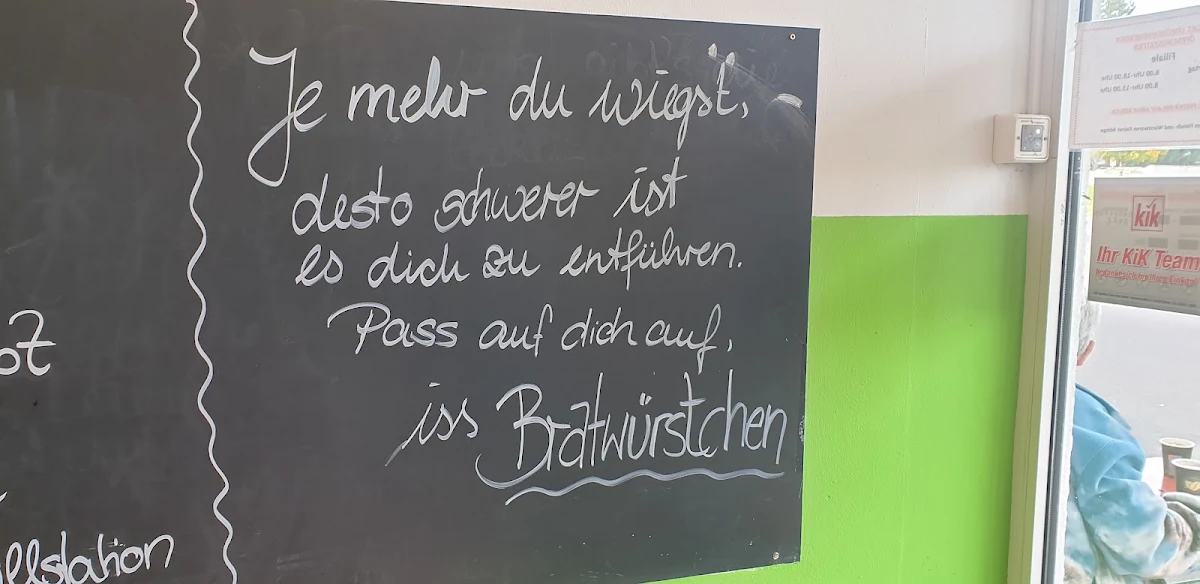 Je mehr du wiegst,
desto schwerer ist
es dich zu entführen.
Pass auf dich auf,
iss Bratwürstchen
kik
Ihr KiK Team
Filiale
8.00 Uhr-18.00 Uhr
8.00 Uhr-13.00 Uhr